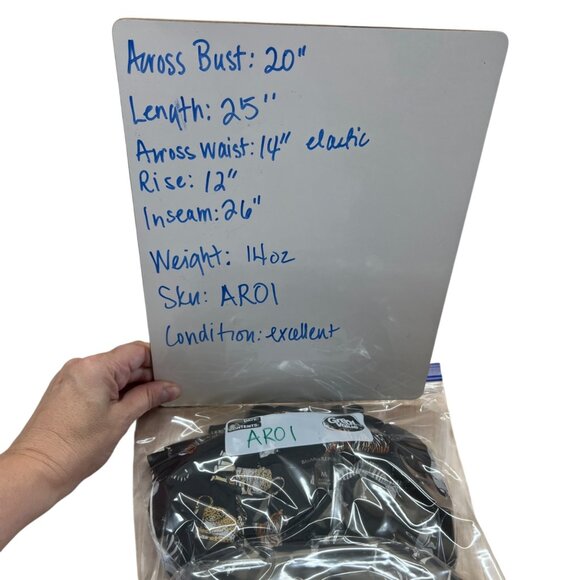 Across Bust: 20"
Length: 25"
Across Waist: 14" elastic
Rise: 12"
Inseam: 26"
Weight: 14oz
Sku: AR01
Condition: excellent
AR01